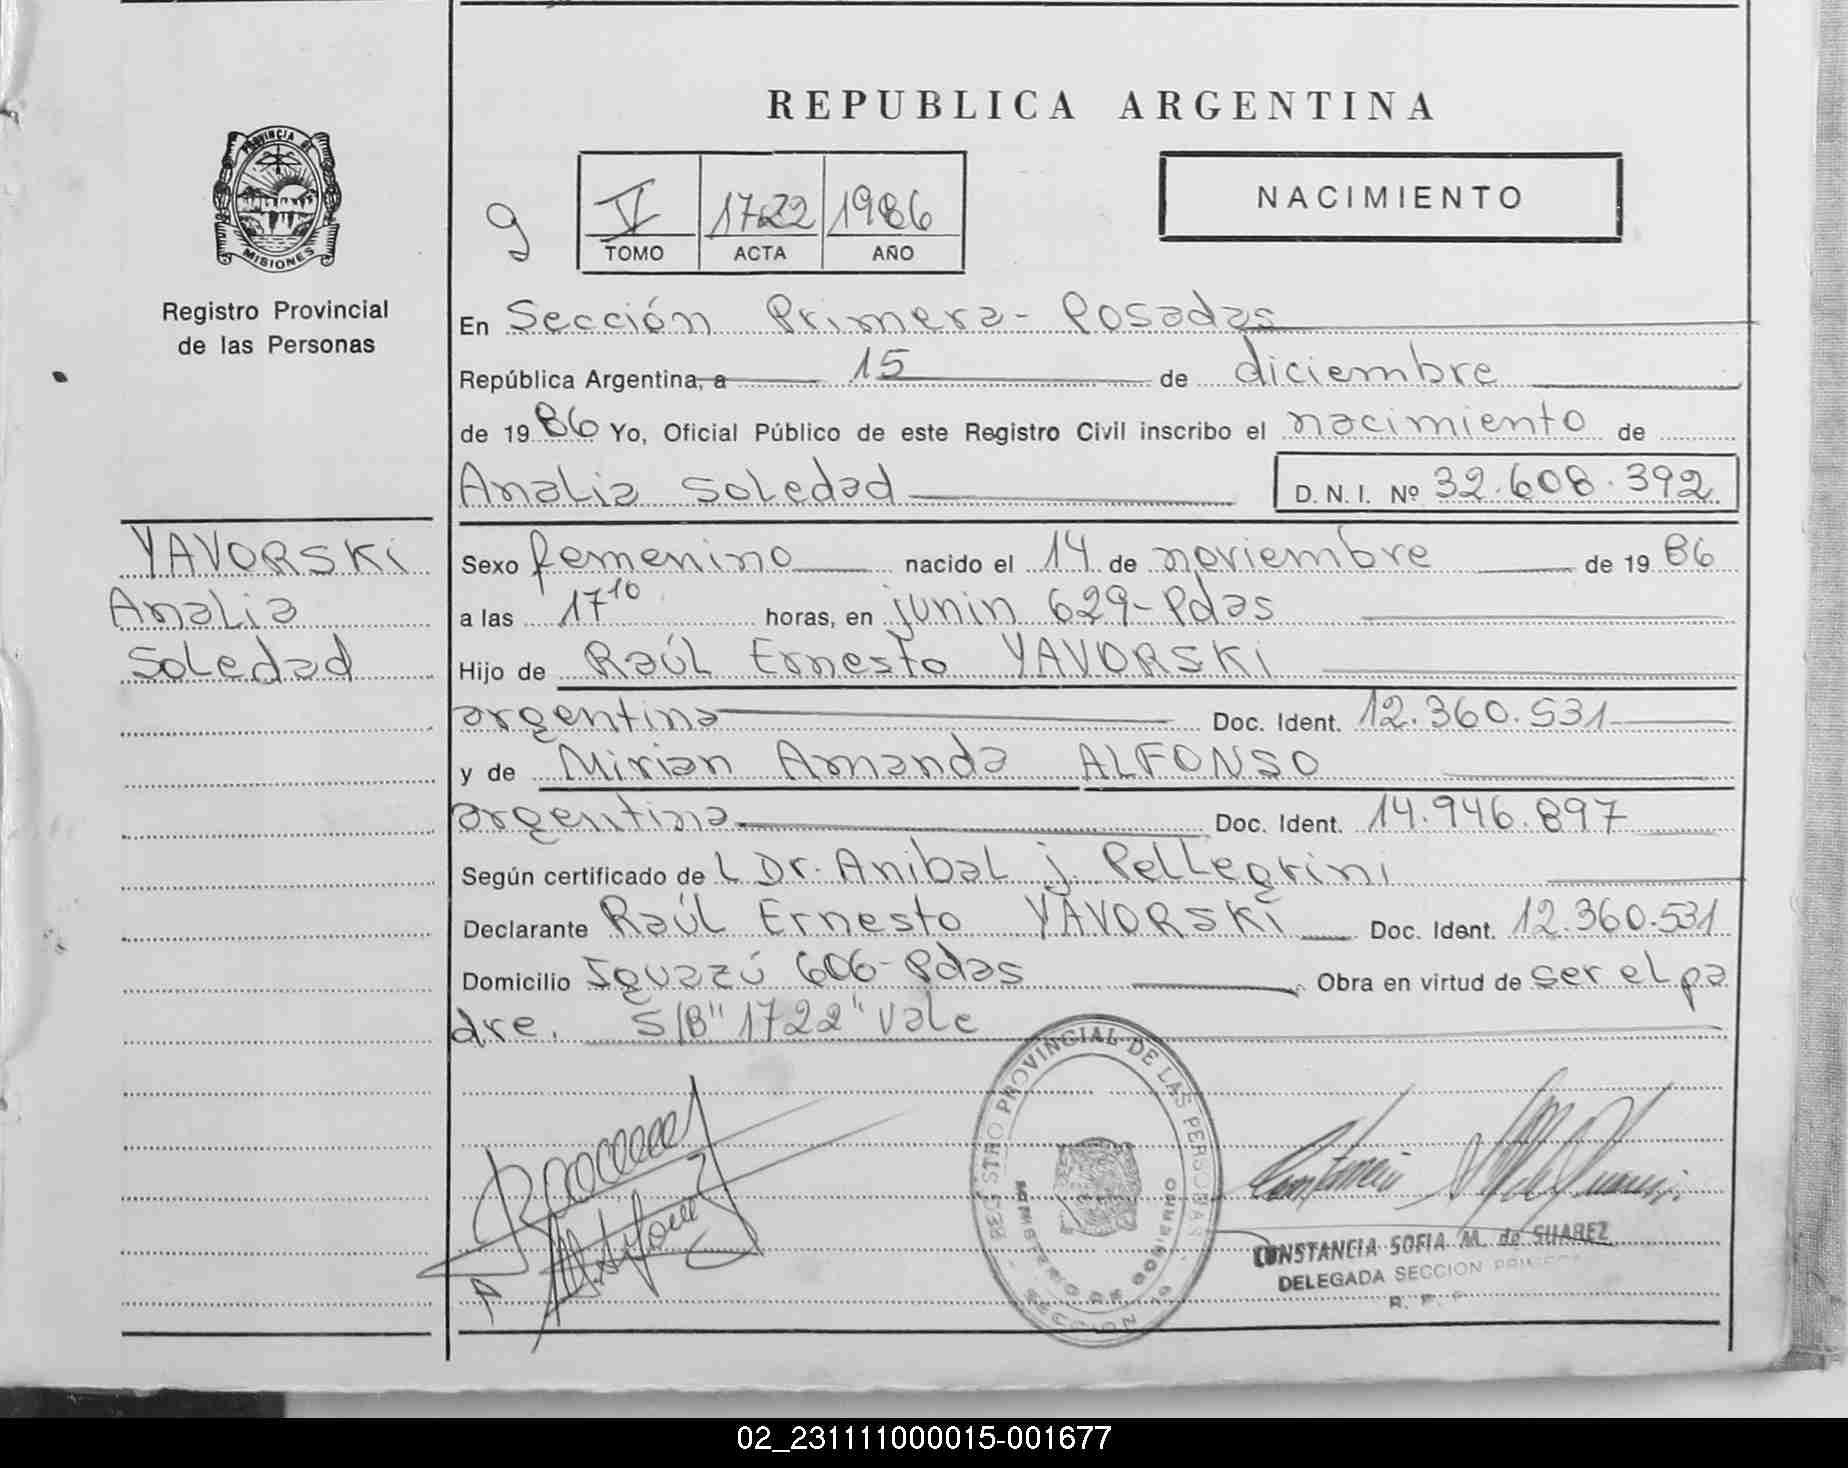 REPUBLICA ARGENTINA
PROVINCIA DE
MISIONES
Registro Provincial
de las Personas
9
V 1722 1986
TOMO ACTA AÑO
NACIMIENTO
En Sección Primera - Posadas
República Argentina, a 15 de diciembre
de 1986 Yo, Oficial Público de este Registro Civil inscribo el nacimiento de
Analia Soledad D.N.I. Nº 32.608.392
YAVORSKi
Analia
Soledad
Sexo femenino nacido el 14 de noviembre de 1986
a las 17 10 horas, en junin 629 - Pdas
Hijo de Raúl Ernesto YAVORSKi
argentina Doc. Ident. 12.360.531
y de Mirian Amanda ALFONSO
argentina Doc. Ident. 14.946.897
Según certificado de L Dr. Anibal j Pellegrini
Declarante Raúl Ernesto YAVORSKi Doc. Ident. 12.360.531
Domicilio Iguazú 606 - Pdas Obra en virtud de ser el pa
dre. S/B "1722" Vale
REGISTRO PROVINCIAL DE LAS PERSONAS
MINISTERIO DE GOBIERNO
SECCION 1ª
CONSTANCIA SOFIA M. de SUAREZ
DELEGADA SECCION PRIMERA
R. P.
02_231111000015-001677